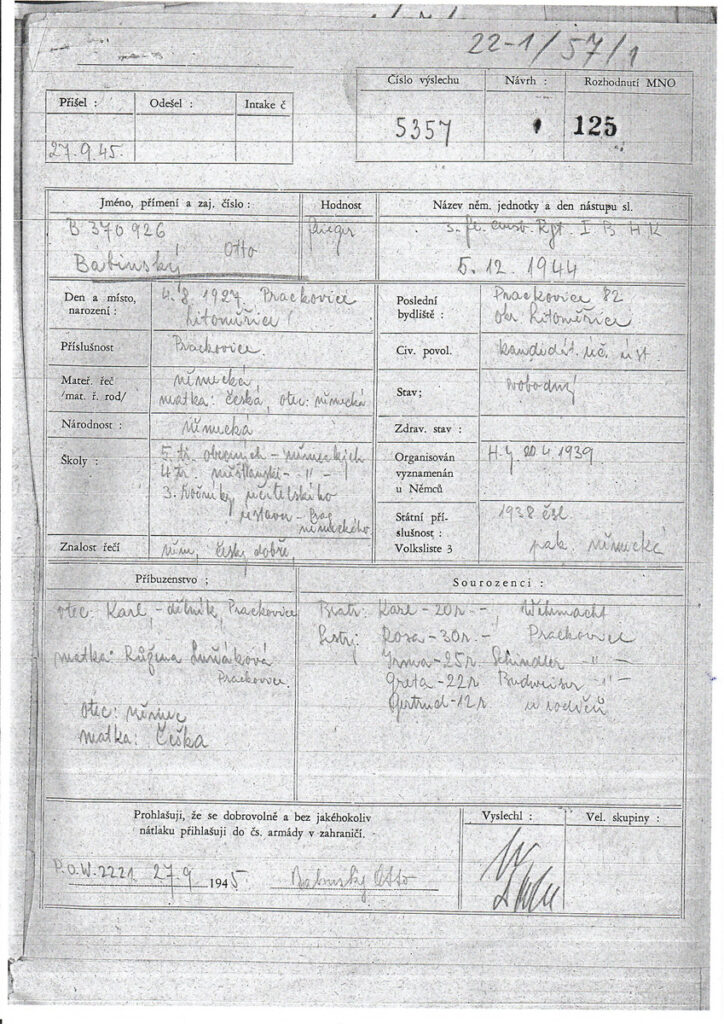 22-1/57/1
Číslo výslechu
Návrh :
Rozhodnutí MNO
5357
125
Přišel :
Odešel :
Intake č
27.9.45.
Jméno, přímení a zaj. číslo :
Hodnost
Název něm. jednotky a den nástupu sl.
B 370926
Otto
Babinský
5.12.1944
Den a místo,
narození :
4.8.1927. Prackovice
Litoměřice
Poslední
bydliště :
Prackovice 82
okr. Litoměřice
Příslušnost
Prackovice.
Civ. povol.
kandidát. uč. úst
Mateř. řeč
/mat. ř. rod/
německá,
matka: česká, otec: německá
Stav;
svobodný
Národnost :
německá
Zdrav. stav :
Školy :
5 tř. obecných - německých
4 tř. měšťanské - " -
3. ročníky učitelského
ústavu -
německého.
Organisován
vyznamenán
u Němců
H.J 20 4 1939
Státní pří-
slušnost :
Volksliste 3
1938 čsl.
pak. německá
Znalost řečí
něm, česky dobře,
Příbuzenstvo ;
Sourozenci :
otec: Karl, - dělník, Prackovice
matka: Růžena
Prackovice.
otec: němec
matka: Češka
Bratr: Karl - 20r. -, Wehrmacht
Sestry: Rosa - 30r. -, Prackovice
Irma - 25r. Schindler - " -
Greta - 22r Budweiser - " -
Gertrud - 12r u rodičů
Prohlašuji, že se dobrovolně a bez jakéhokoliv
nátlaku přihlašuji do čs. armády v zahraničí.
Vyslechl :
Vel. skupiny :
P.O.W. 2221 27.9 1945
Babinský Otto